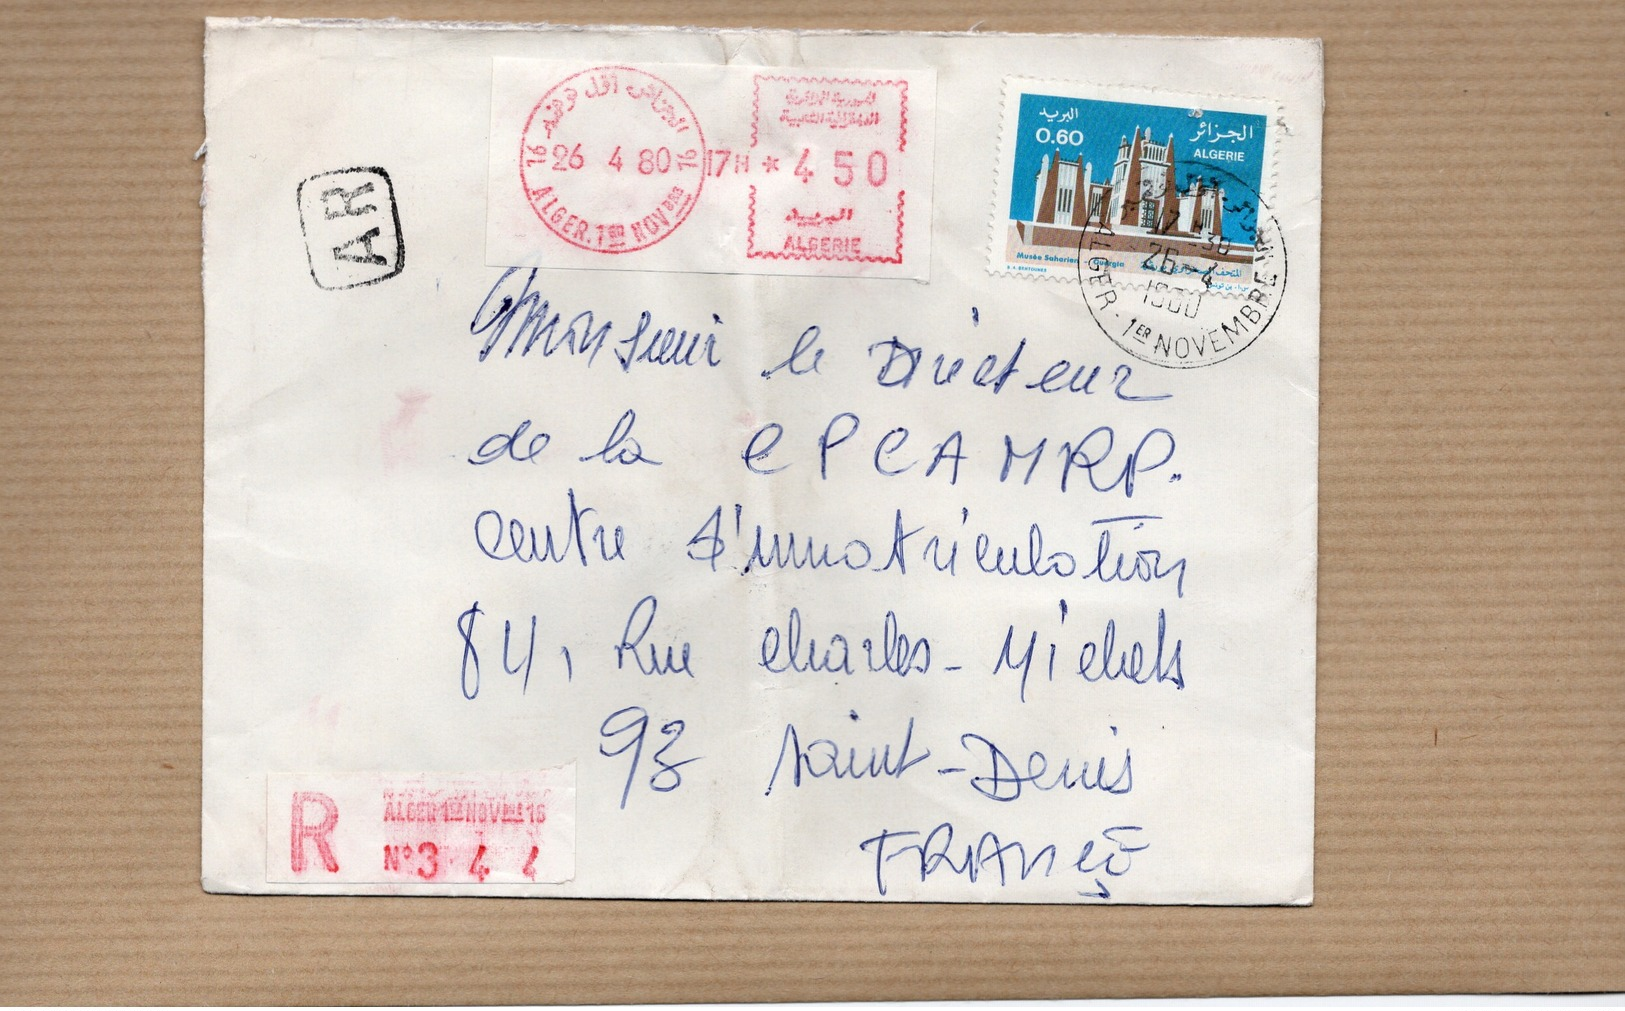 الجزائر أول نوفمبر
16 26 4 80 16 17H * 4 50
ALGER.1ER NOVBRE
الجمهورية الجزائرية
الديمقراطية الشعبية
البريد
ALGERIE
البريد
0.60
الجزائر
ALGERIE
Musée Saharien Ouargla
17 H30
26 - 4
1980
ALGER - 1ER NOVEMBRE
AR
Monsieur le Directeur
de la CPCAMRP.
centre d'immatriculation
84, Rue Charles-Michels
93 Saint-Denis
FRANCE
R
ALGER 1ER NOVBRE 16
N° 3 4 4